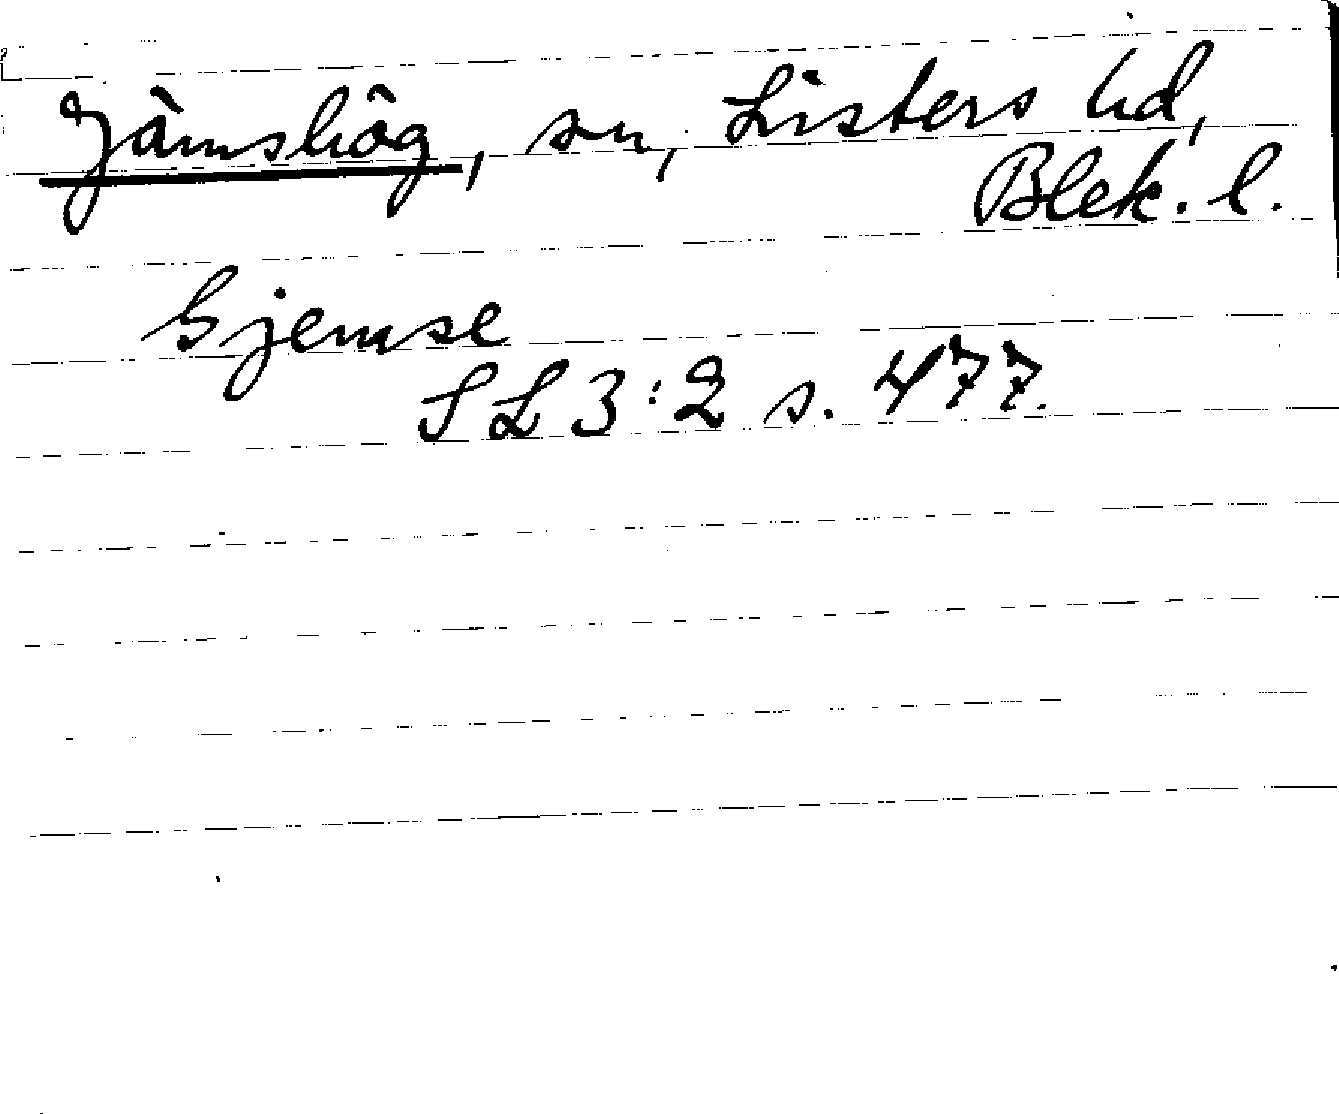 Jämshög, sn, Listers hd,
Blek. l.
Gjemse
SL 3:2 s. 477.